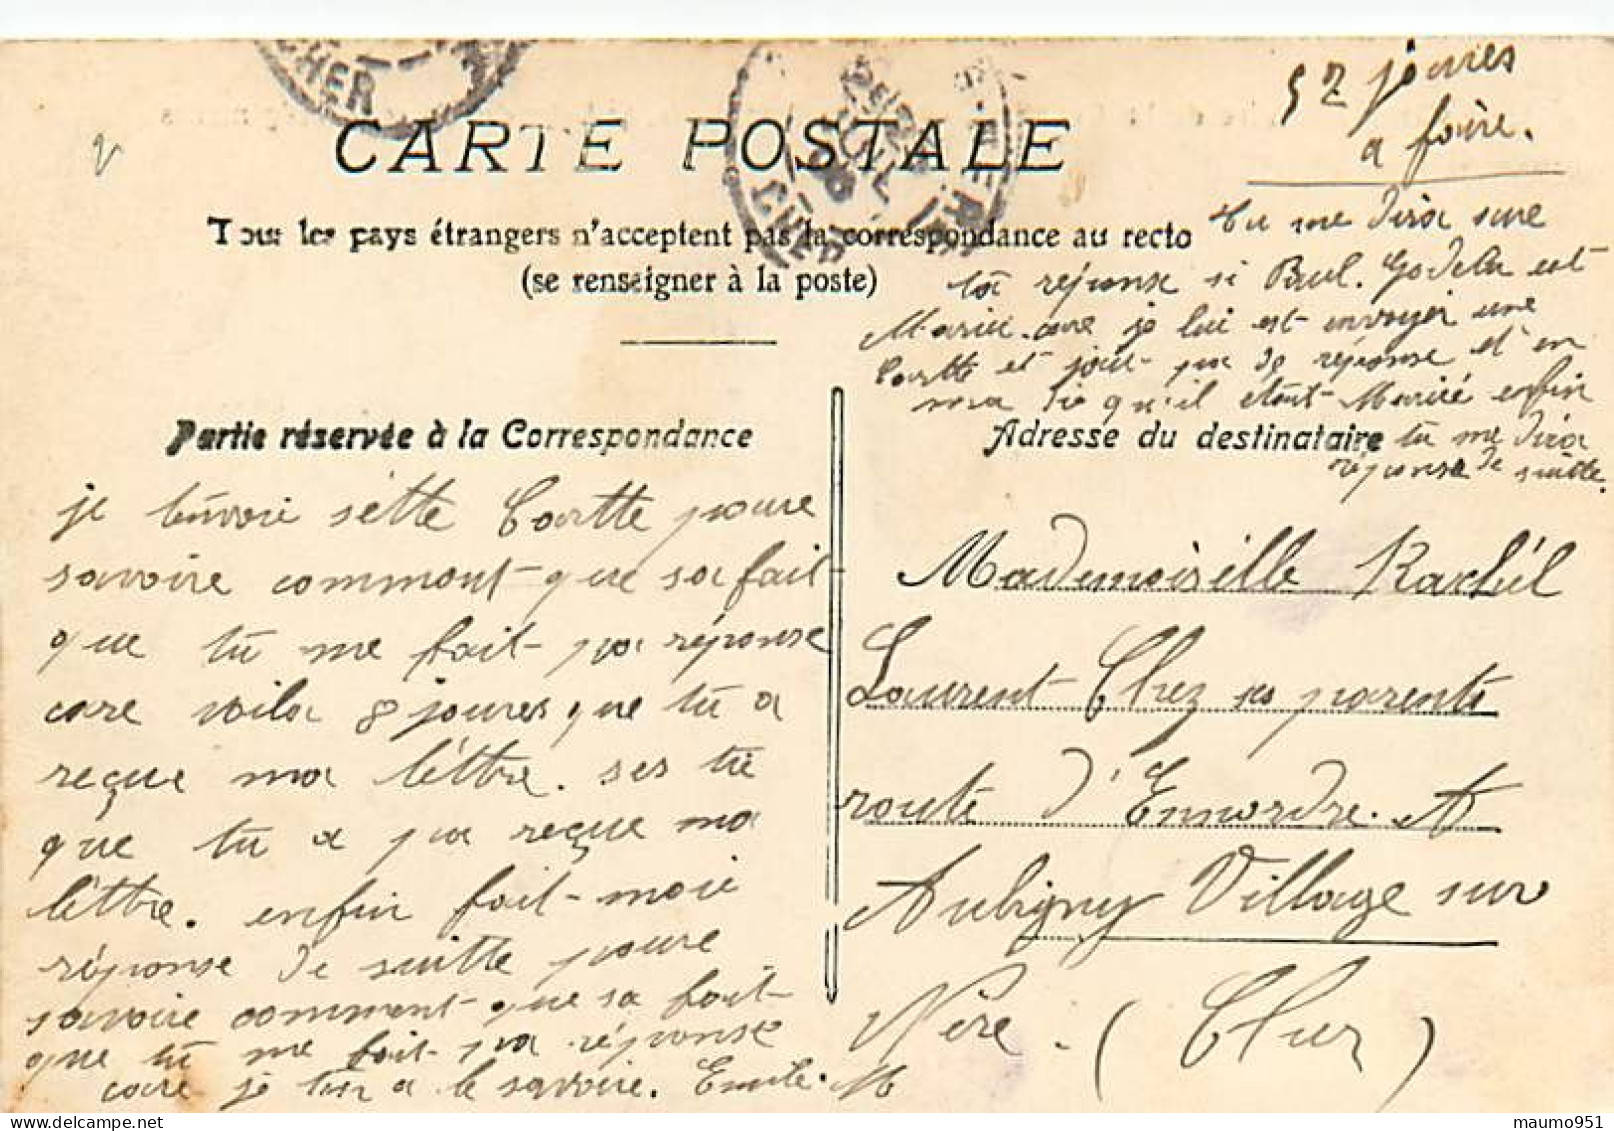 CHER
52 joures
a foire.
CARTE POSTALE
CHER
Tous les pays étrangers n'acceptent pas la correspondance au recto
(se renseigner à la poste)
Tu me dira sure
ta réponse si Paul. Godelu est
Marié. care je lui est envoyér une
Cartte et jait pa de réponse et on
ma die qu'il étant Marié enfin
tu me dira
réponse de suitte.
Partie réservée à la Correspondance
Adresse du destinataire
je tenvoie sette Cartte poure
savoire commont que sa fait
que tu me fait pa réponse
care voila 8 joures que tu a
reçue ma léttre. ses tu
que tu a pa reçue ma
léttre. enfin fait-moie
réponse de suitte poure
savoire comment que sa fait
que tu me fait pa réponse
care je tien a le savoire. Emile. M
Mademoisélle Rachél
Laurent Chez ses parents
route d'Ennordre. A
Aubigny Village sur
Nère. (Cher)
maumo951